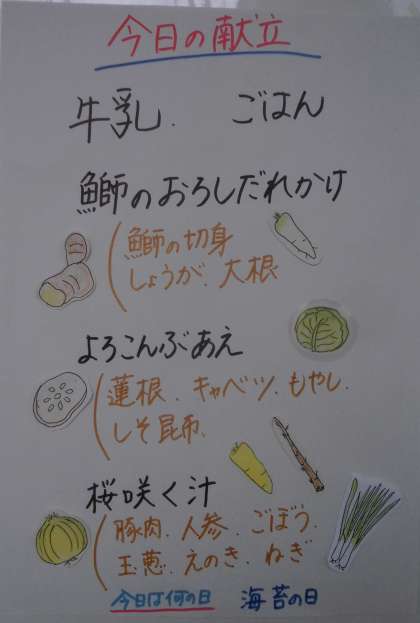 今日の献立
牛乳. ごはん
鰤のおろしだれかけ
鰤の切身
しょうが、大根
よろこんぶあえ
蓮根、キャベツ、もやし、
しそ昆布、
桜咲く汁
豚肉、人参、ごぼう、
玉葱、えのき、ねぎ
今日は何の日 海苔の日